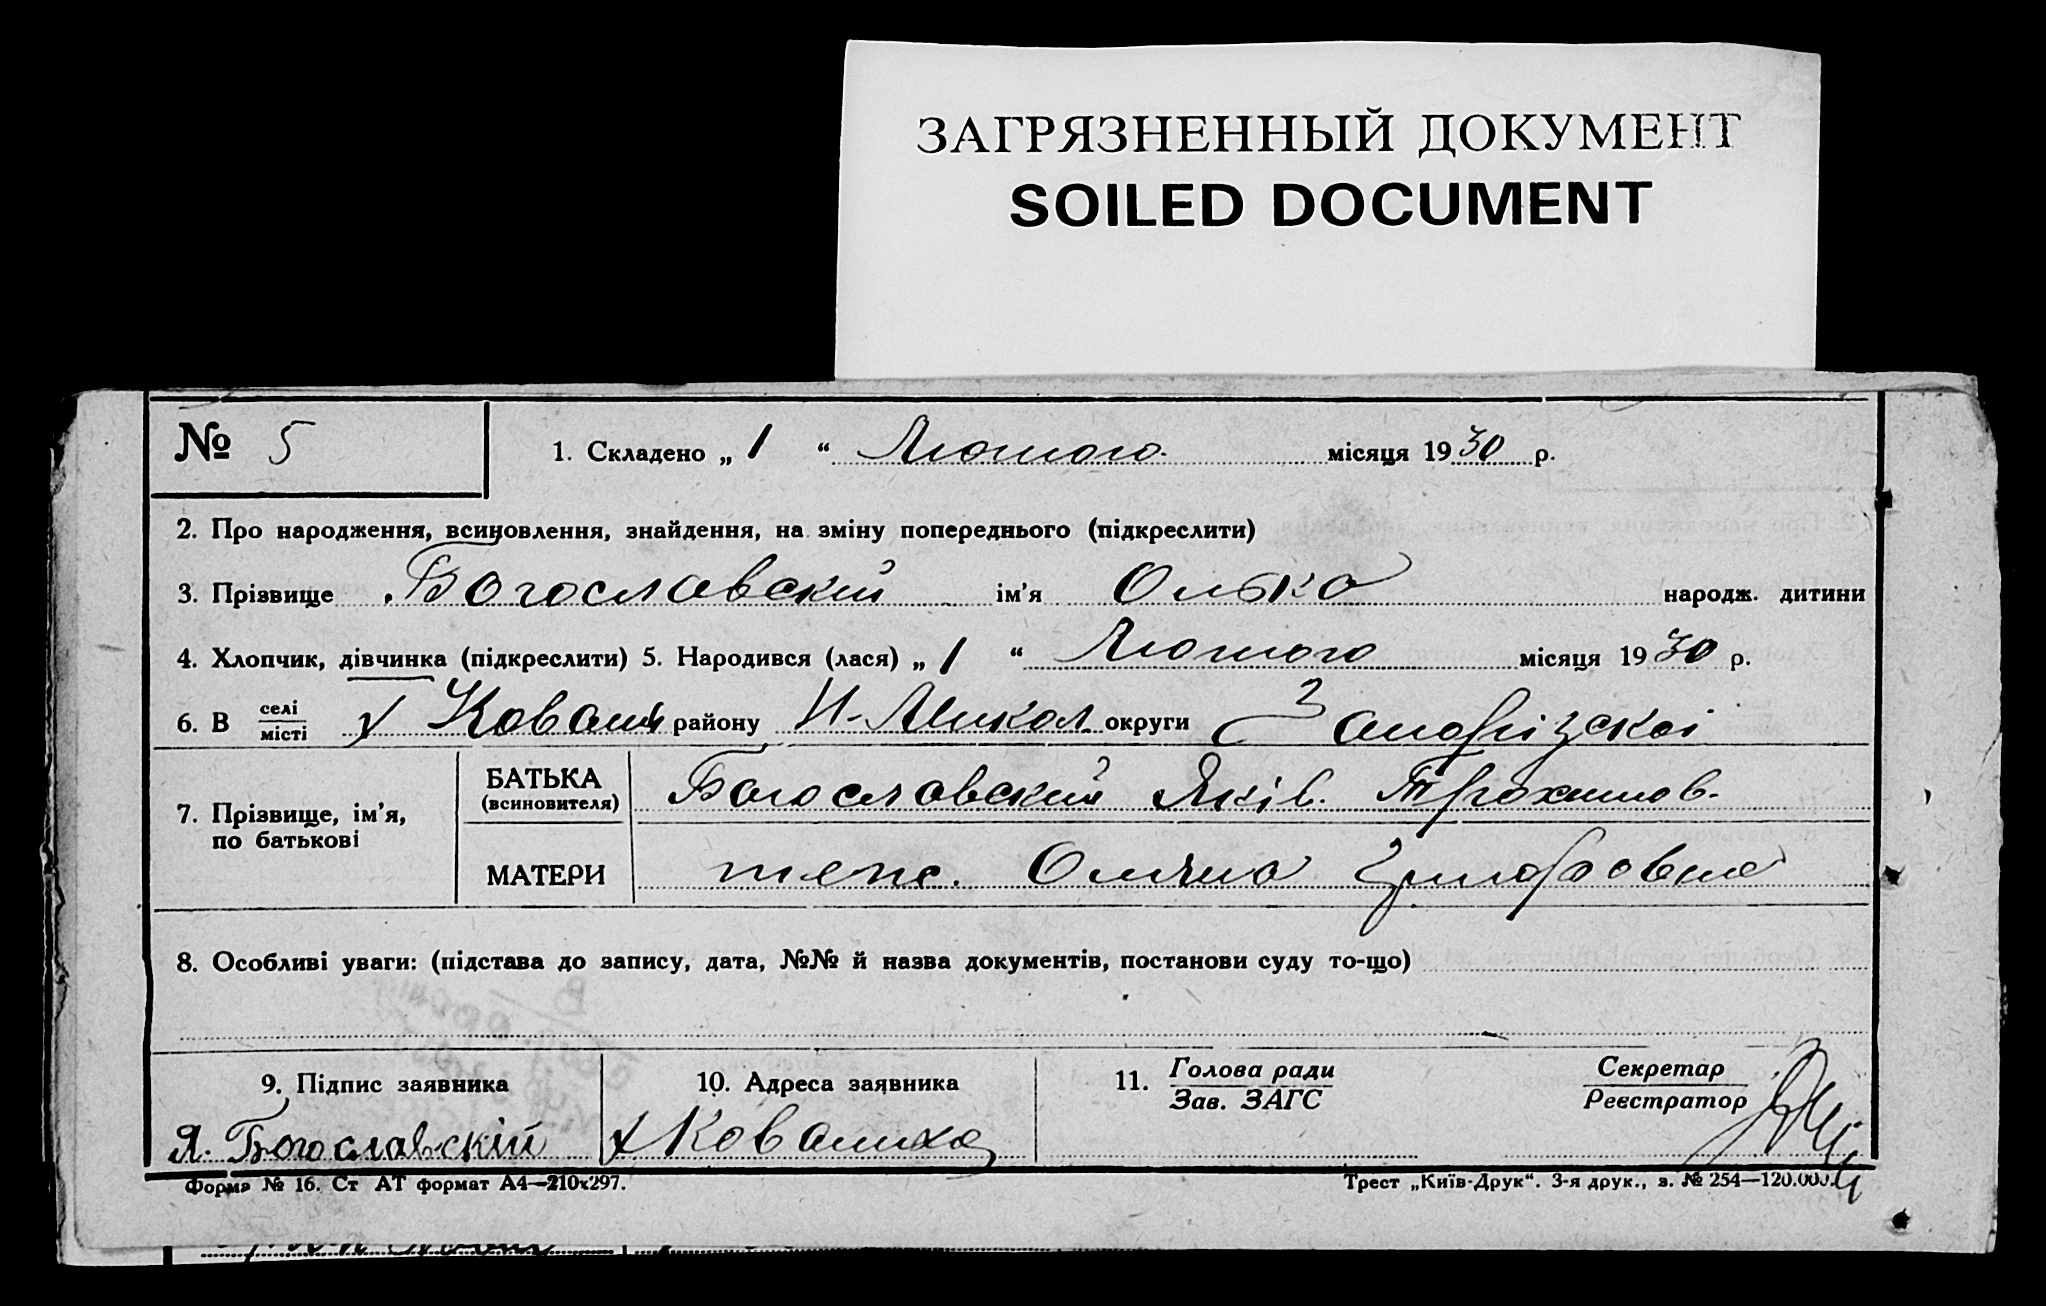 ЗАГРЯЗНЕННЫЙ ДОКУМЕНТ
SOILED DOCUMENT
№ 5
1. Складено „ 1 “ Лютого місяця 1930 р.
2. Про народження, всиновлення, знайдення, на зміну попереднього (підкреслити)
3. Прізвище Богославский ім'я Олько народж. дитини
4. Хлопчик, дівчинка (підкреслити) 5. Народився (лася) „ 1 “ Лютого місяця 1930 р.
6. В селі місті х Ковалих району Н-Микол. округи Запорізскоі
7. Прізвище, ім'я, по батькові
БАТЬКА (всиновителя) Богославский Яків. Трохимов.
МАТЕРИ теж.
8. Особливі уваги: (підстава до запису, дата, №№ й назва документів, постанови суду то-що)
9. Підпис заявника
10. Адреса заявника
11. Голова ради Зав. ЗАГС
Секретар Реєстратор
Я. Богославскій
х Ковалиха
Форма № 16. Ст АТ формат А4—210х297.
Трест „Київ-Друк“. 3-я друк., з. № 254—120.000.